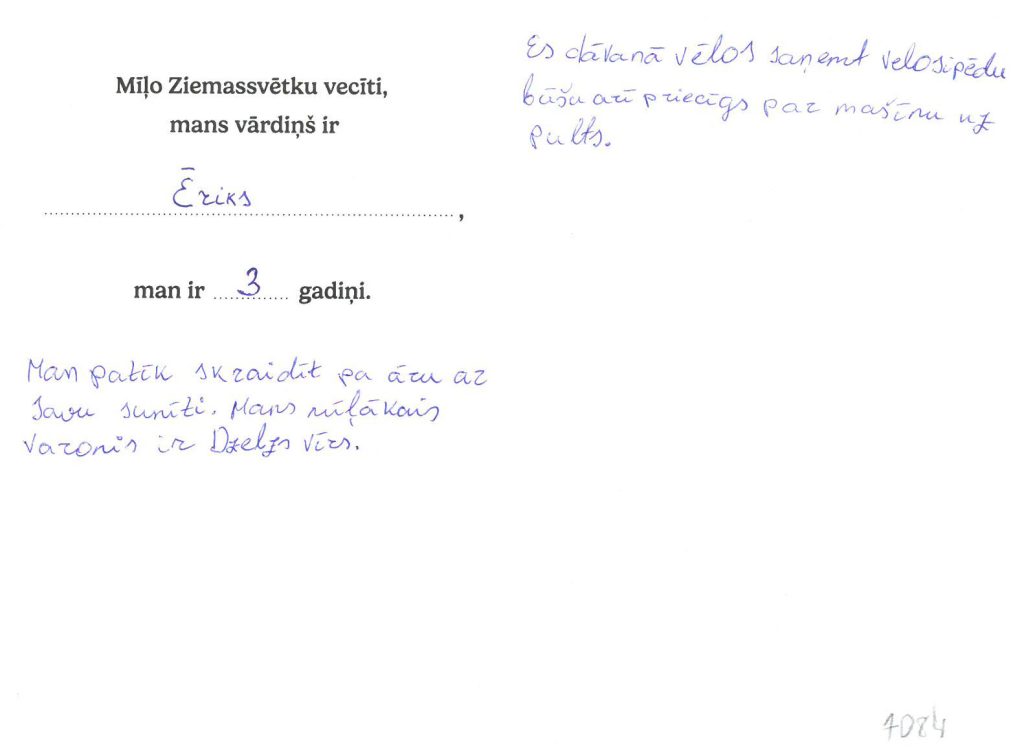 Mīļo Ziemassvētku vecīti,
mans vārdiņš ir
Ēriks,
man ir 3 gadiņi.
Man patīk skraidīt pa āru ar
savu sunīti. Mans mīļākais
varonis ir Dzelzs vīrs.
Es dāvanā vēlos saņemt velosipēdu
būšu arī priecīgs par mašīnu uz
pults.
7084